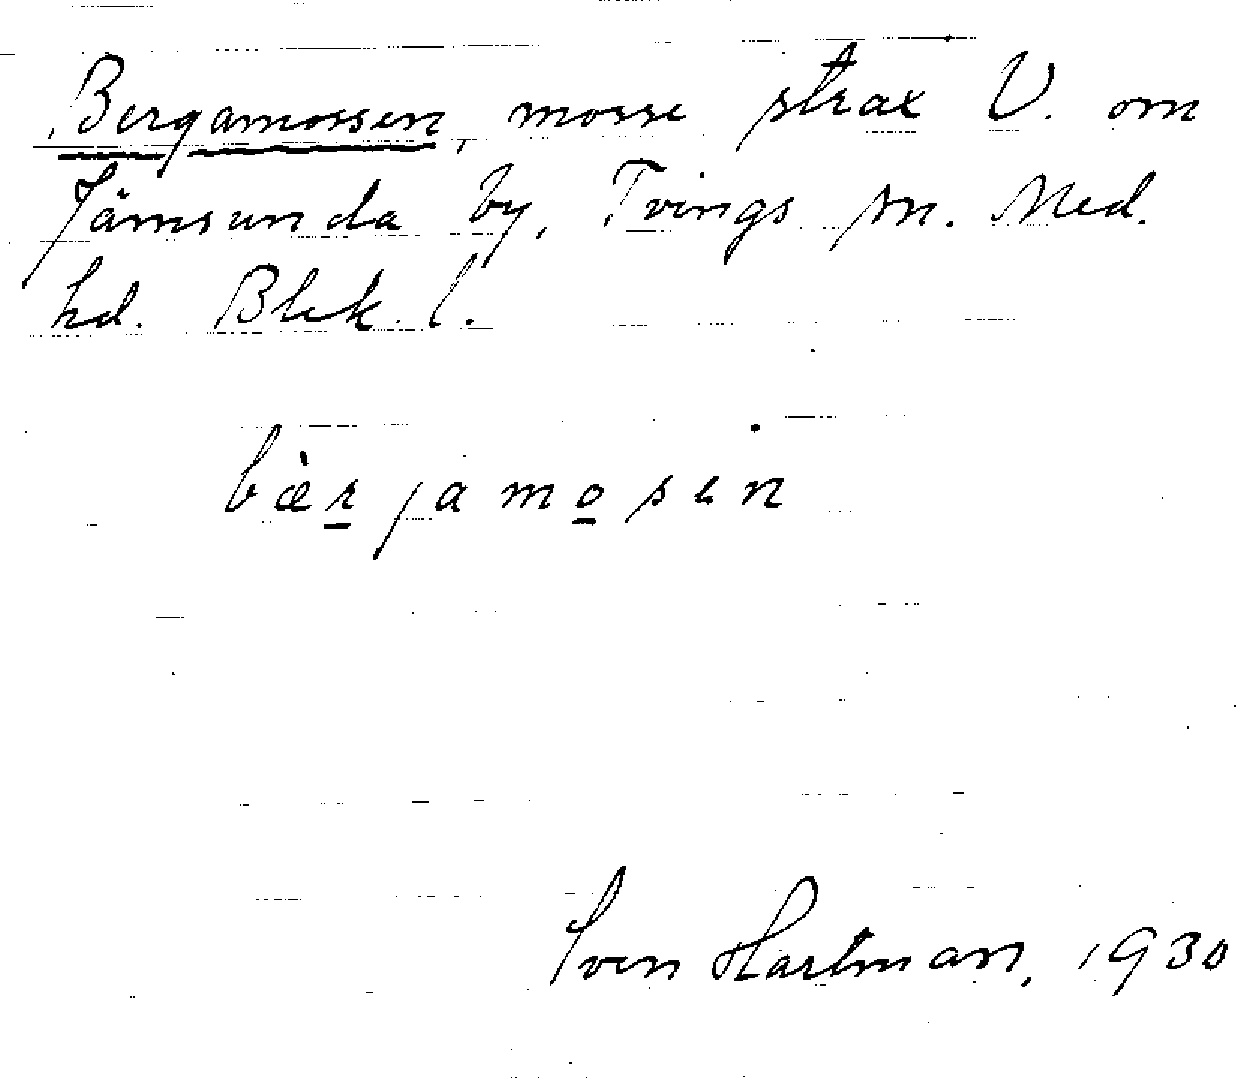 Bergamossen, mosse strax V. om
Jämsunda by, Tvings sn. Med.
hd. Blek. l.
bæ̀rjamosen
Sven Hartman, 1930